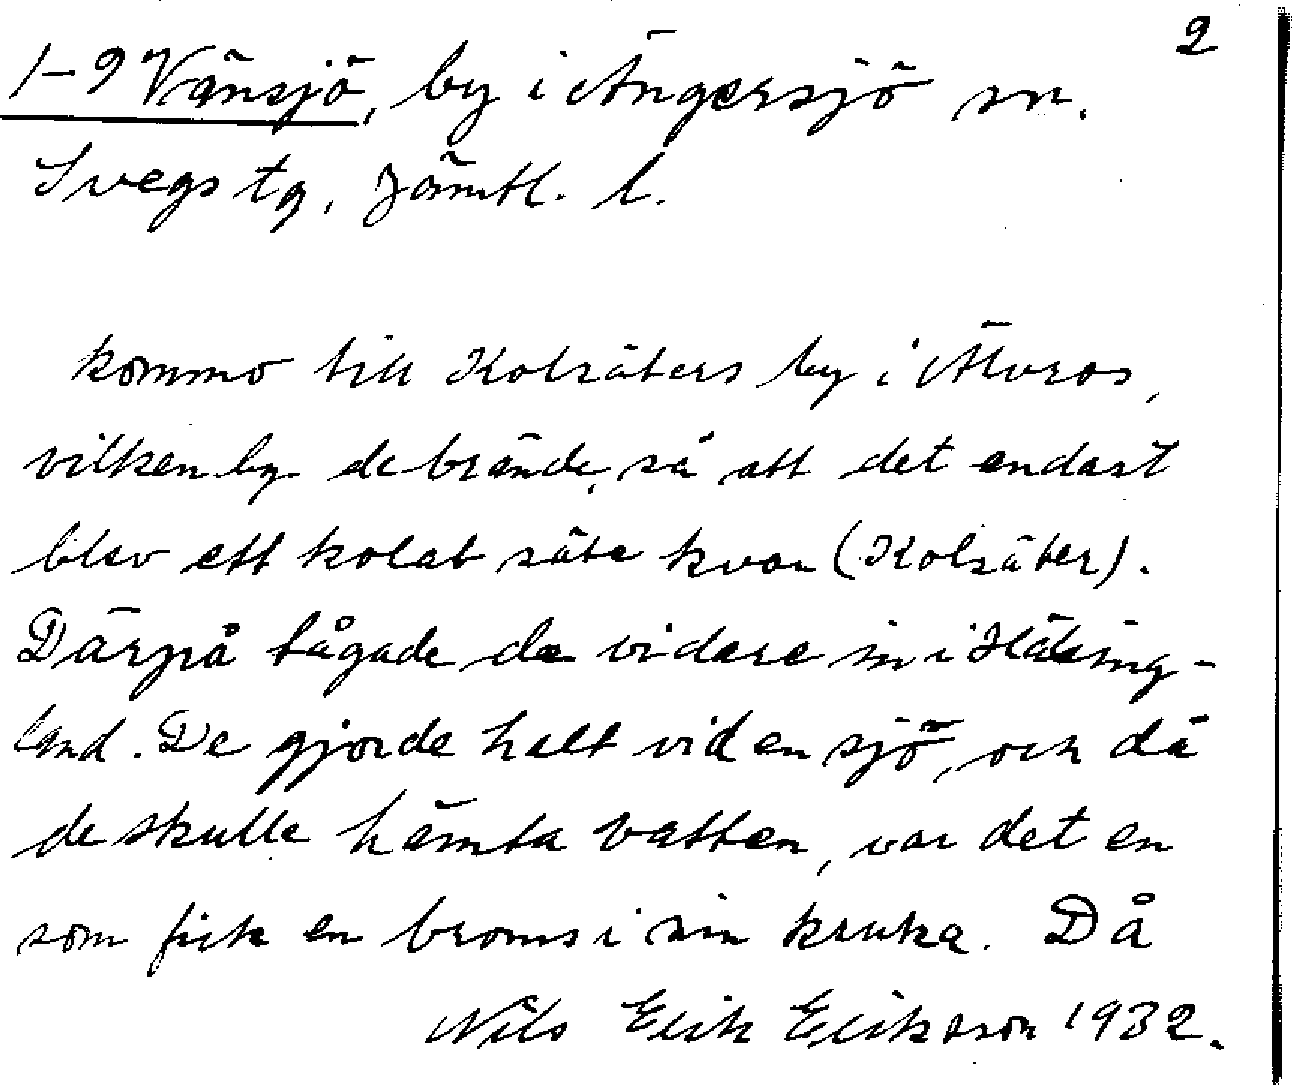 2
1-9 Vänsjö, by i Ängersjö sn.
Svegs tg, Jämtl. l.
kommo till Kolsäters by i Älvros,
vilken by de brände, så att det endast
blev ett kolat säte kvar (Kolsäter).
Därpå tågade de vidare in i Hälsing-
land. De gjorde halt vid en sjö, och då
de skulle hämta vatten, var det en
som fick en broms i sin kruka. Då
Nils Erik Eriksson 1932.